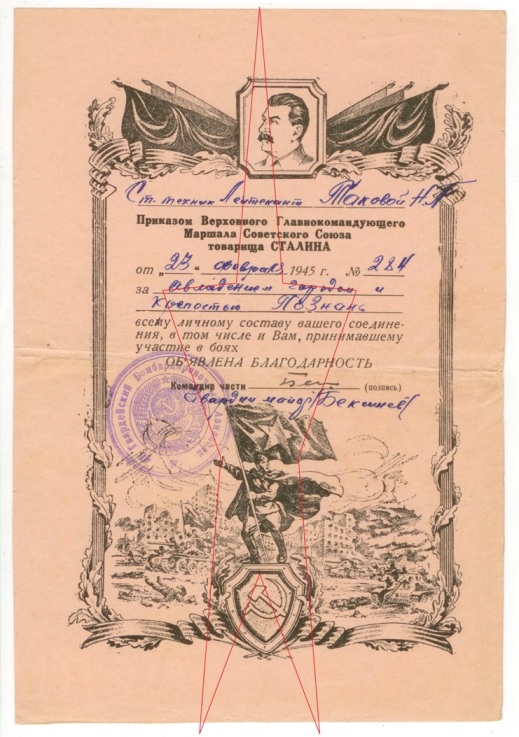 Ст. техник Лейтенант Таковой Н.П
Приказом Верховного Главнокомандующего
Маршала Советского Союза
товарища СТАЛИНА
от „23“ февраля 1945 г. № 284
за овладением городом и
крепостью Познань
всему личному составу вашего соедине-
ния, в том числе и Вам, принимавшему
участие в боях
ОБЪЯВЛЕНА БЛАГОДАРНОСТЬ
Командир части (подпись)
Гвардии майор
Гвардейский Бомбардировочный